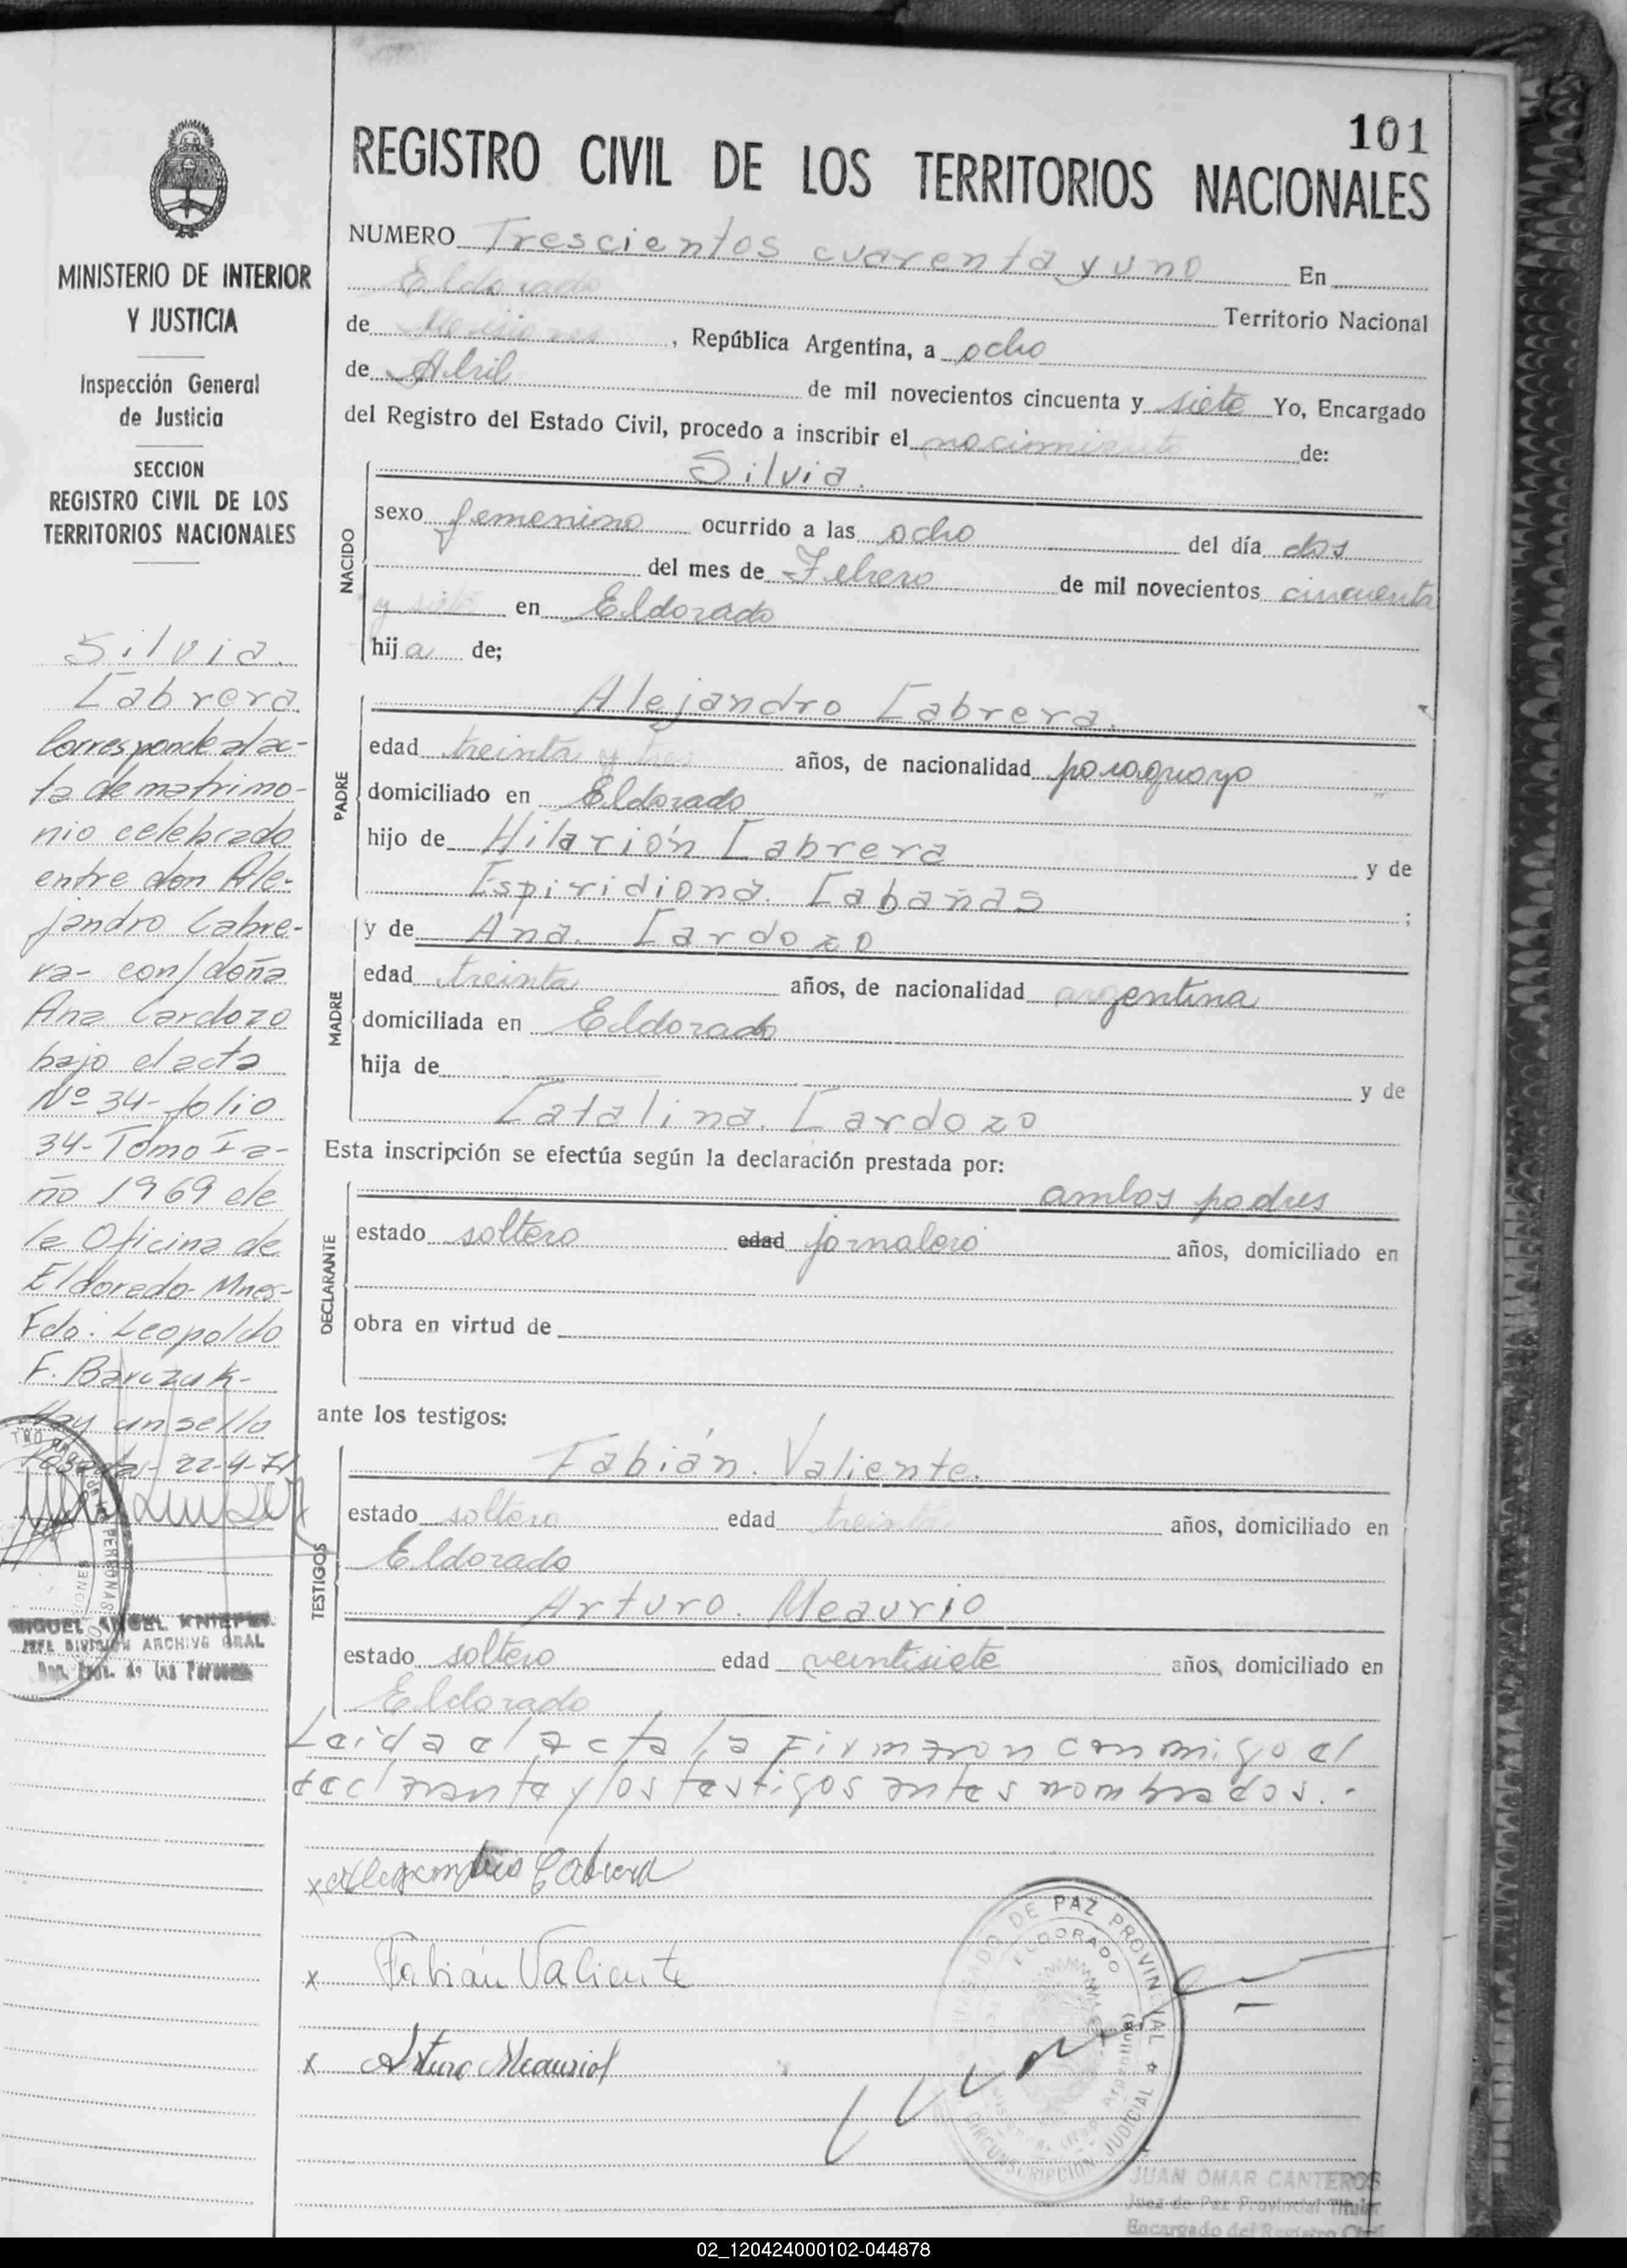 101
REGISTRO CIVIL DE LOS TERRITORIOS NACIONALES
MINISTERIO DE INTERIOR
Y JUSTICIA
Inspección General
de Justicia
SECCION
REGISTRO CIVIL DE LOS
TERRITORIOS NACIONALES
Silvia.
Cabrera
Corresponde al ac-
ta de matrimo-
nio celebrado
entre don Ale-
jandro Cabre-
ra- con/doña
Ana Cardozo
bajo el acta
Nº 34- folio
34- Tomo I a-
ño 1969 de
la Oficina de
Eldorado- Mnes-
Fdo. Leopoldo
F. Barczuk-
Hay un sello
22-4-71
MIGUEL ANGEL
JEFE DIVISION ARCHIVO GRAL
de las Personas
NUMERO Trescientos cuarenta y uno En
Eldorado Territorio Nacional
de Misiones, República Argentina, a ocho
de Abril de mil novecientos cincuenta y siete Yo, Encargado
del Registro del Estado Civil, procedo a inscribir el nacimiento de:
Silvia.
NACIDO
sexo femenino ocurrido a las ocho del día dos
del mes de Febrero de mil novecientos cincuenta
y siete en Eldorado
hija de;
Alejandro Cabrera.
PADRE
edad treinta y tres años, de nacionalidad paraguayo
domiciliado en Eldorado
hijo de Hilarión Cabrera y de
Espiridiona. Cabañas ;
y de Ana. Cardozo
MADRE
edad treinta años, de nacionalidad argentina
domiciliada en Eldorado
hija de y de
Catalina. Cardozo
Esta inscripción se efectúa según la declaración prestada por:
ambos padres
DECLARANTE
estado soltero edad jornalero años, domiciliado en
obra en virtud de
ante los testigos:
Fabián. Valiente.
TESTIGOS
estado soltero edad treinta años, domiciliado en
Eldorado
Arturo. Meaurio
estado soltero edad veintisiete años, domiciliado en
Eldorado
Leida el acta la firmaron conmigo el
declarante y los testigos antes nombrados.-
x Cabrera
x Fabián Valiente
x Arturo Meaurio
DE PAZ PROVINCIAL
ELDORADO
CIRCUNSCRIPCION JUDICIAL
JUAN OMAR CANTEROS
Juez de Paz Provincial Titular
Encargado del Registro Civil
02_120424000102-044878